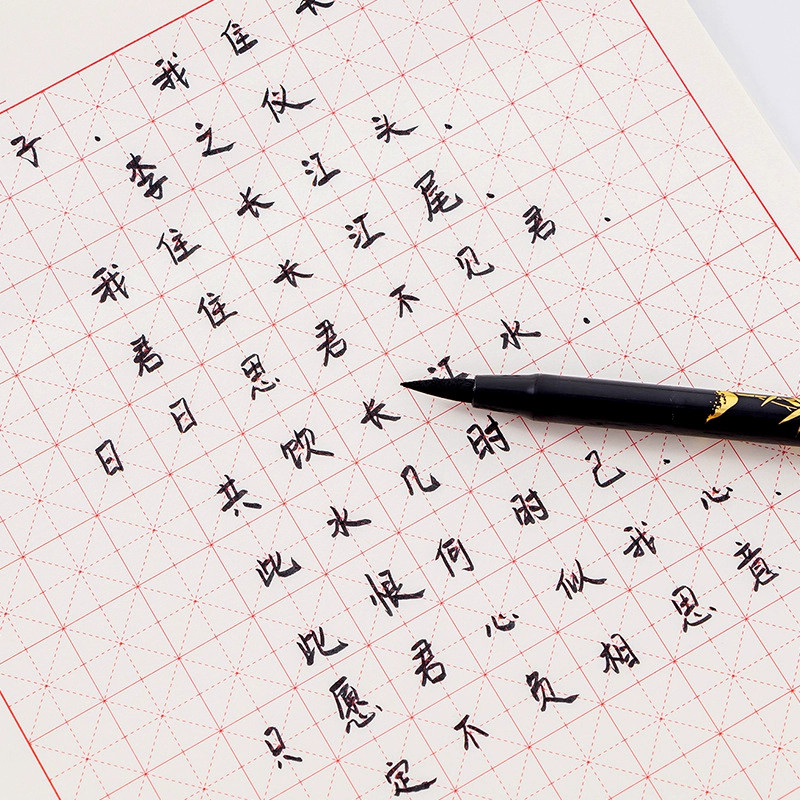 子.我住长
李之仪
我住长江头.
君住长江尾.
日日思君不见君.
共饮长江水.
此水几时
此恨何时已.
只愿君心似我心.
定不负相思意